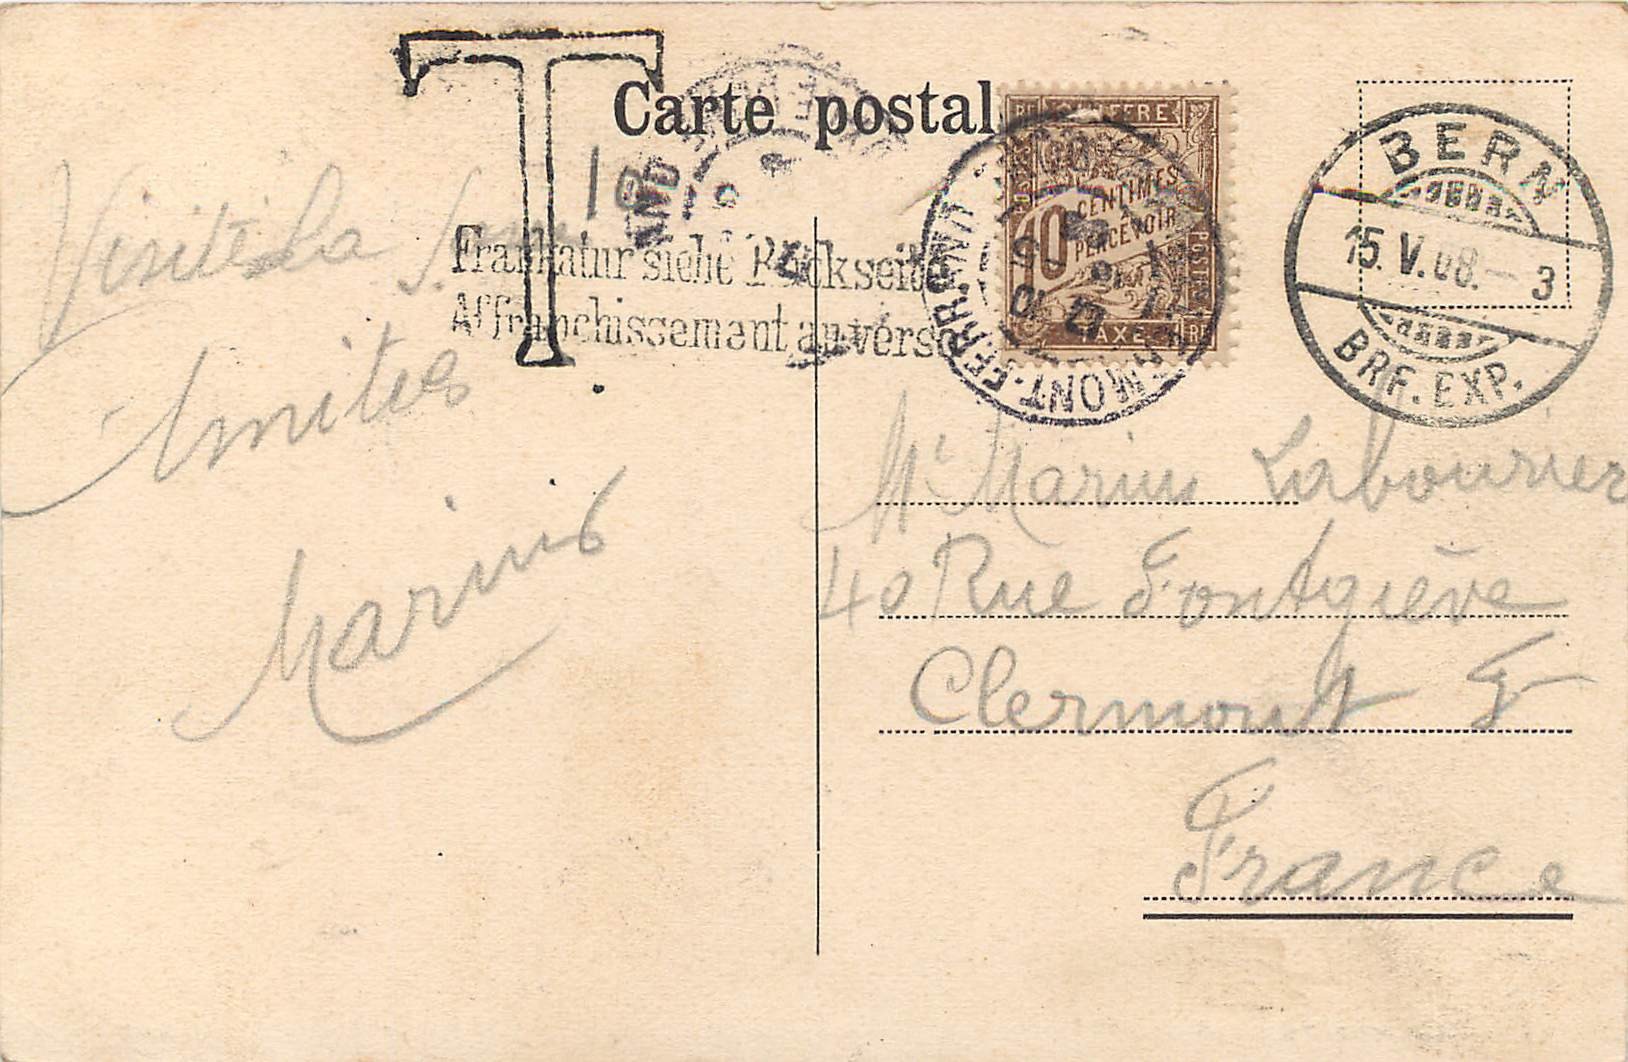 T
Carte postale
10
CHIFFRE
10 CENTIMES
À
PERCEVOIR
TAXE
RF
POSTES
CLERMONT-FERRAND
BERN
15.V.08.-3
BRF. EXP.
Frankatur siehe Rückseite
Affranchissement au verso
Visite la
Amities
Marius
Mr Marius Labourier
40 Rue Fontgiève
Clermont F
France